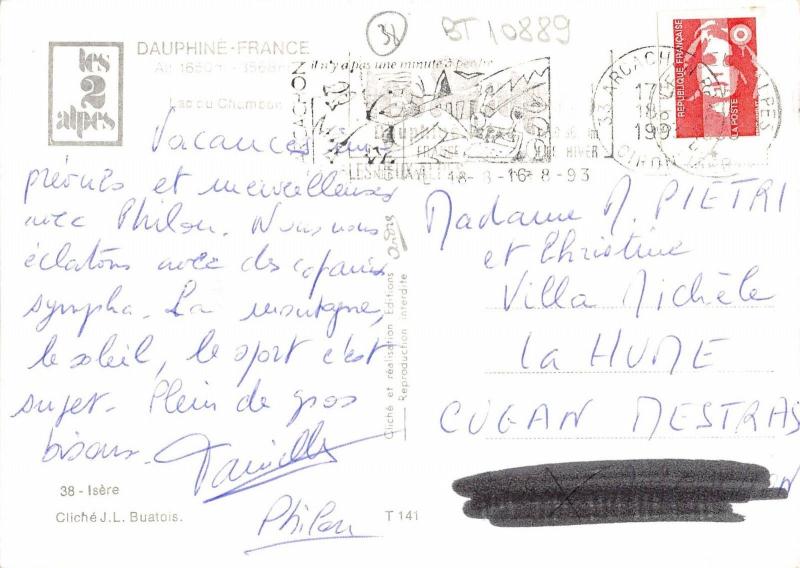 31
BT 10889
les
2
alpes
DAUPHINÉ-FRANCE
Lac du Chambon
il n'y a pas une minute à perdre
HIVER
18-8-16-8-93
33 ARCACHON
ALPES
RÉPUBLIQUE FRANÇAISE
LA POSTE
Vacances
prévues et merveilleuses
avec Philou. Nous nous
éclatons avec des copains
sympha. La montagne,
le soleil, le sport c'est
super. Plein de gros
bisous.
Philou
38 - Isère
Cliché J.L. Buatois.
T 141
Cliché et réalisation Editions andré
Reproduction interdite
Madame M. PIETRI
et Christine
Villa Michèle
La HUME
CUGAN MESTRAS